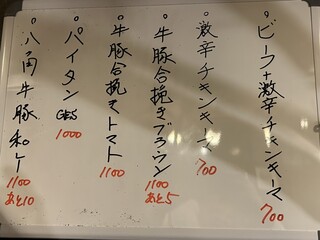 ビーフ+激辛チキンキーマ
700
激辛チキンキーマ
700
牛豚合挽きブラウン
1100
あと5
牛豚合挽きトマト
1100
パイタン
1000
八角牛豚和レー
1100
あと10